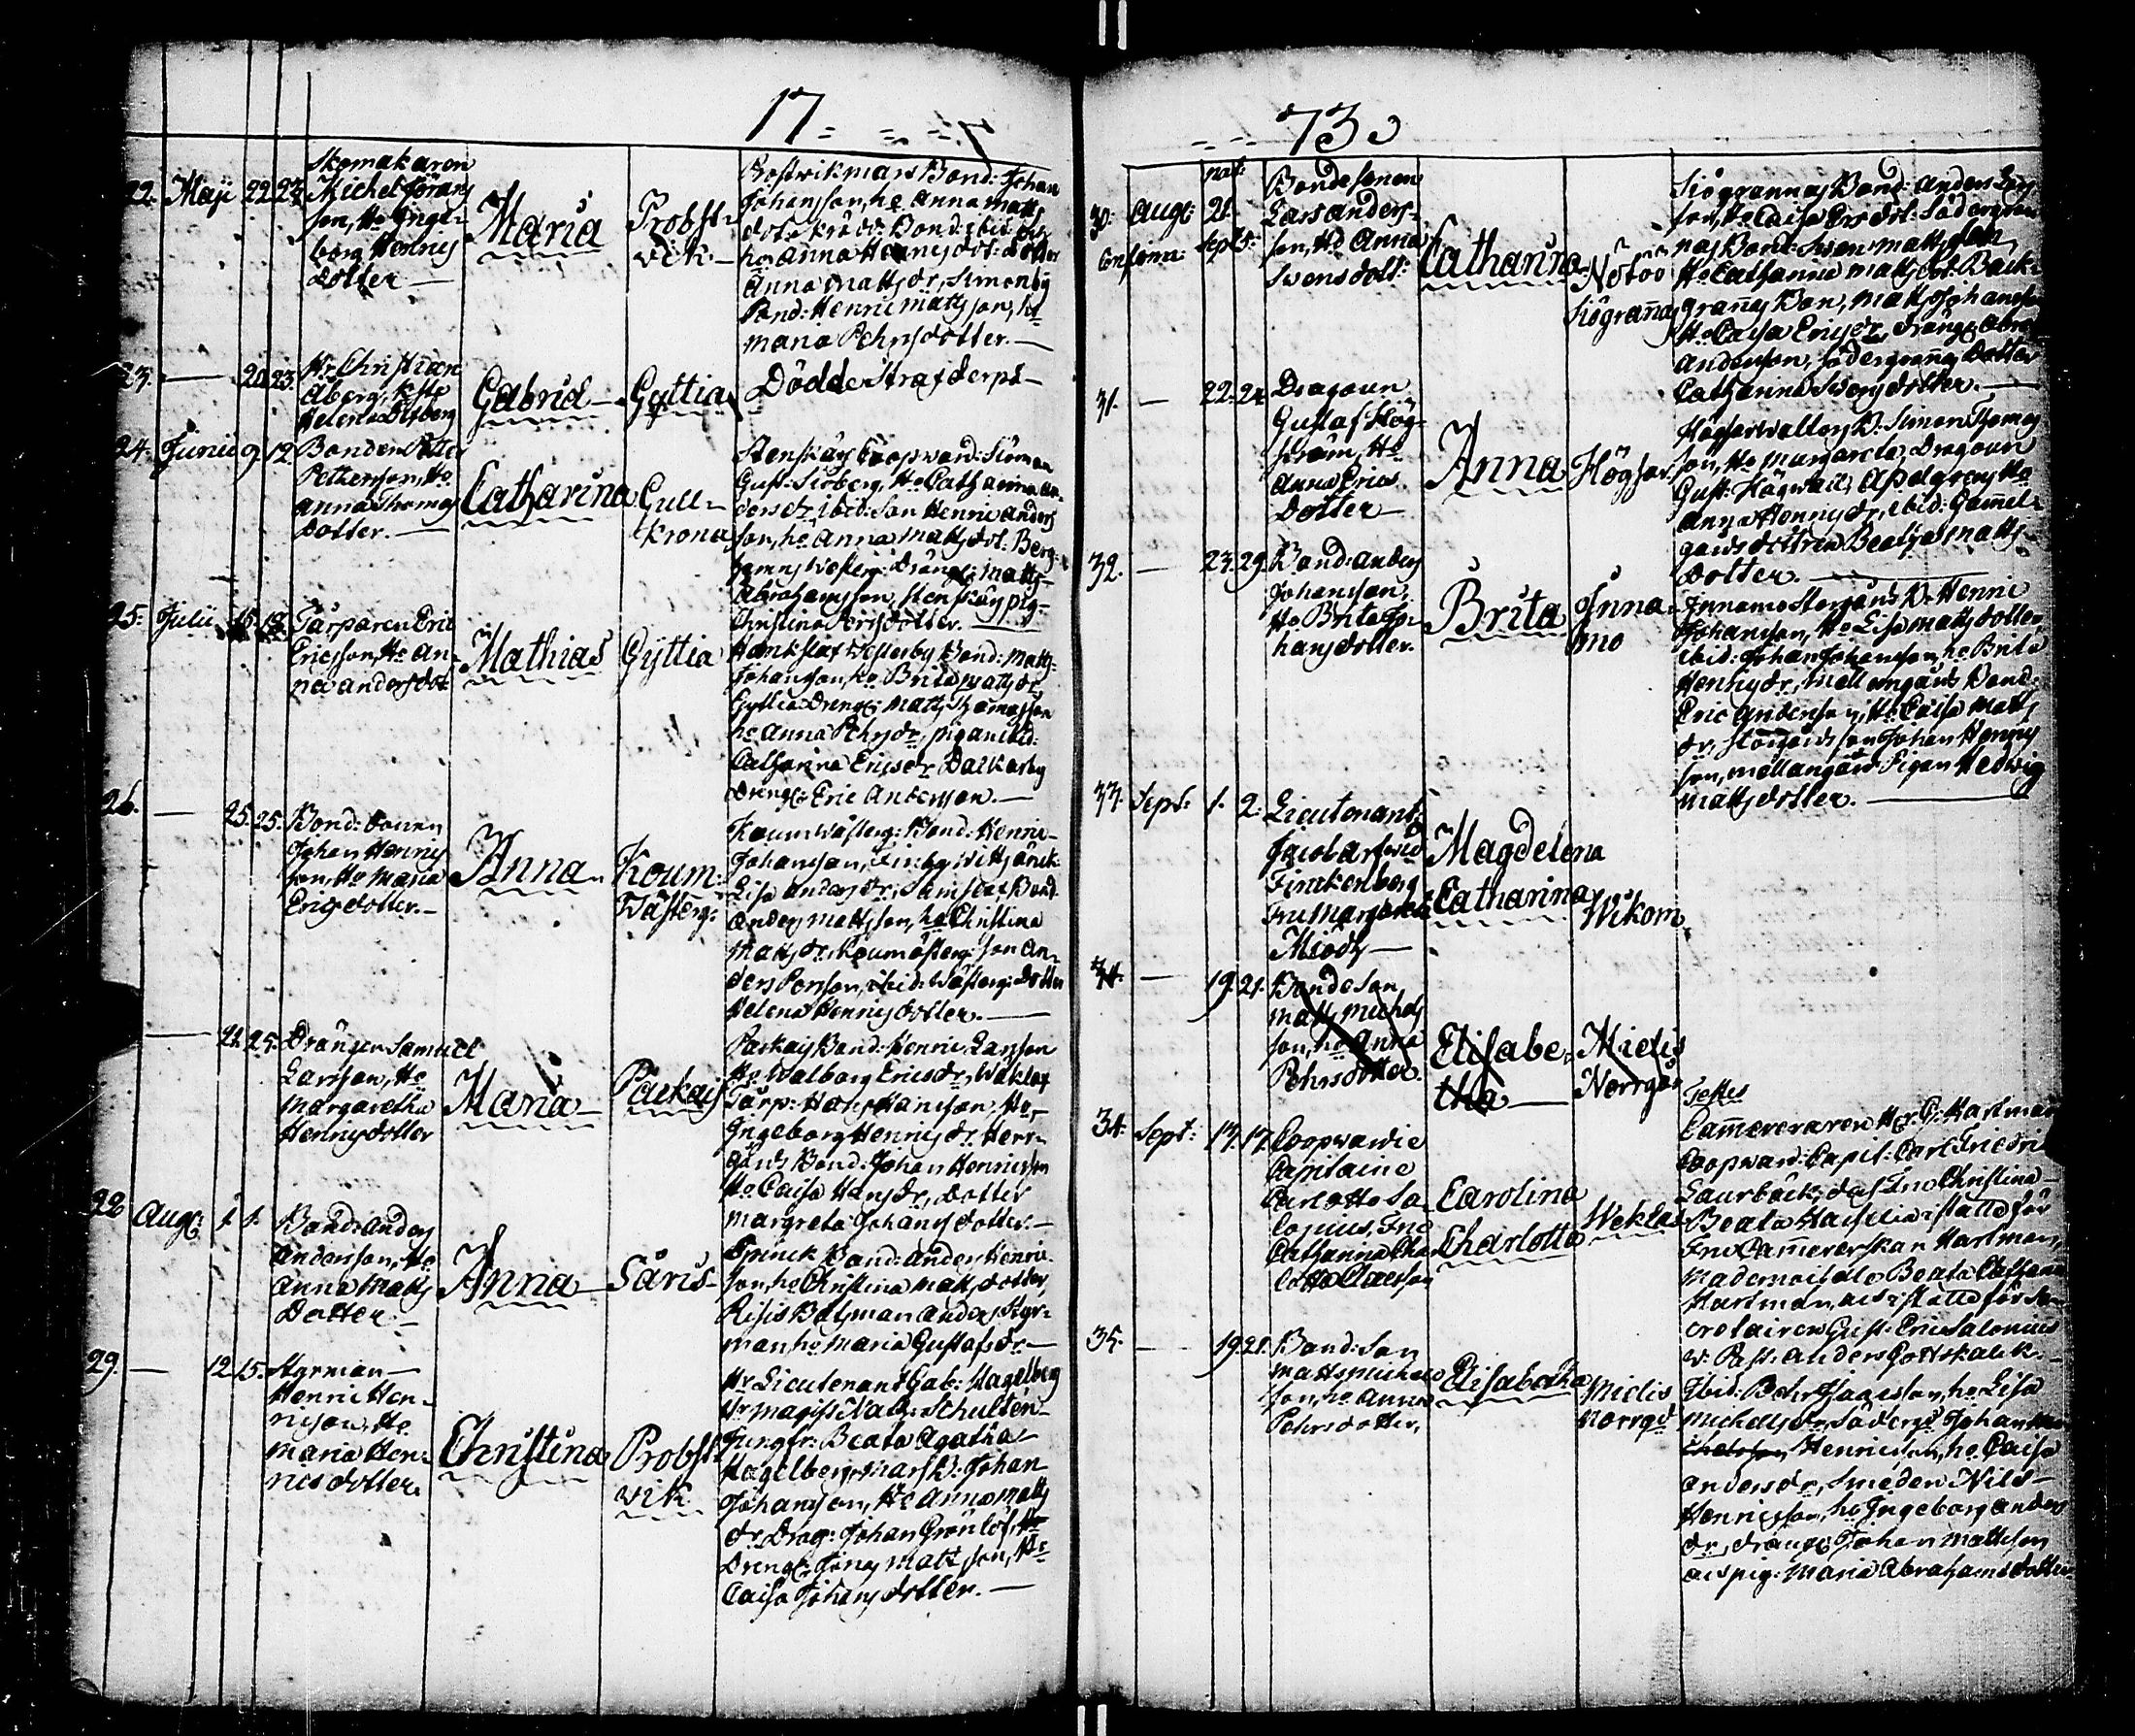 17
73
22. Maji 22. 23.
Skomakaren
Michel Görans
son, Ho Inge-
borg Henris
dotter
Maria
Probst-
vik
Bond: Johan
Johansson, ho Anna Matts
Anna Matts dr, Simonby
Bond: Henric Mattsson, ho
Maria Pehrsdotter.
23. — 20. 23.
Hr Christian
Åberg,
Helena
Gabriel
Gyttia
Dödde strax derpå
24. Junii 9. 12.
Bonden Petter
Pettersson, Ho
Anna Thomas
dotter.
Catharina
Gull-
krona
Gust: Siöberg, Ho Catharina An-
dersdr, ibid: Son Henric Anders
son, ho Anna Matts dot: Berg-
hamns Westerg: Dräng: Matts
Abrahamsson, Stenskärs pig-
Christina Persdotter.
25. Julii 15. 18.
Torparen Eric
Ericsson, Ho An-
na Andersdot
Mathias
Gyttia
Westerby Bond: Matts
Johansson, ho Brita Matts dr,
Gyttia Dreng: Matts Thomasson
ho Anna Pehrs dr, pigan ibid:
Catharina Ericsdr, Dalkarby
Dreng: Eric Andersson.
26. — 25. 25.
Bond:
Johan Henris
son, Ho Maria
Ericsdotter.
Anna
Koum
Wästerg:
Koum Wästerg: Bond: Henric
Johansson,
Lisa Anders dr, Bond
Anders Mattsson, ho Christina
Matts dr, son An-
ders Persson, ibid: Wästerg: dotter
Helena Henris dotter.
— 24. 25.
Drängen Samuel
Larsson, Ho
Margaretha
Henrisdotter
Maria
Parkais
Parkais Bond: Henric Larsson
Ho Walborg Ericsdr, Waklax
Torp: Hans Hansson, Ho
Ingeborg Henris dr, Herr-
gårds Bond: Johan Henricsson
Ho Caisa Hans dr, dotter
Margreta Johans dotter.
Aug: 1. 1.
Bond: Anders
Andersson, Ho
Anna Matts
Dotter
Anna
Säris
Bond: Anders Henric
son, ho Christina Matts dotter,
Risis Båtsman Anders Styr-
man ho Maria Gustafs dr.
29. — 12. 15.
Styrman
Henric Hen-
ricson, Ho
Maria Hen-
rics dotter.
Christina
Probst-
vik
Hr Lieutenant Gab: Hagelberg
Hr Magist: Nath: Schulten
Jungfr: Beata Agatha
Hagelberg, Mars B: Johan
Johansson, Ho Anna Matts
dr, Drag: Johan Grönlöf, Ho
Dreng: Jöns Mattsson, Ho
Caisa Johans dotter.
30. Aug: 21.
Sept: 5.
Bondesonen
Lars Anders-
son, Ho Anna
Swensdott:
Catharina
Nötöö
Siögranna
Siögrannas Bond: Anders Lars
son, Ho Caisa Ersdot: Södergran-
nas Bond: Swen Mattsson,
Ho Catharina Matts dot: Back-
grannas Bon, Matts Johansson
Ho Caisa Erics dr, dräng: Abra
Andersson, södergrannas dotter
Catharina Swens dotter.
31. — 22. 24.
Dragoun
Gustaf Hög-
ström, Ho
Anna Erics
Dotter
Anna
Högsar
Högsarwallens B: Simon Thomas
son, Ho Margareta, Dragoun
Gust: Högwall, Ho
Anna Henris dr, ibid: Gammel-
gårds dottren Beata Matts
dotter.
32. — 23. 29.
Bond: Anders
Johansson,
Ho Brita Jo-
hansdotter.
Brita
Inna-
mo
Innamo Storgårds B: Henric
Johansson, Ho Lisa Matts dotter
ibid: Johan Johansson, ho Brita
Henris dr, Mellangårds Bond:
Eric Andersson, Ho Caisa Matts
dr, Storgårds son Johan Henris
son, Mellangårds Pigan Hedwig
Matts dotter.
33. Sept: 1. 2.
Lieutenant:
Jacob Arfwid
Finckenberg
Fru Margareta
Miödh
Magdelena
Catharina
Wikom
34. — 19. 21.
Bonde Son
Matts Michels
son, ho Anna
Pehrsdotter.
Elisabe-
tha
Mielis
Norrgå
34. Sept: 13. 17.
Coopwardie
Capitaine
Carl Otto Sa-
lonius, Fru
Catharina Char
lotta Claesson
Carolina
Charlotta
Weklax
Testes
Cammereraren Hr: G: Hartman
Coopward: Capit: Carl Fredric
Saurbäck, dess Fru Christina
Beata i stället för
Fru Cammererskan Hartman,
Mademoiselle Beata Catharina
Hartman, i stället för Se-
creteraren Gust: Eric Salonius
v: Past: Anders Gottskalk.
35. — 19. 21.
Bond: Son
Matts Michels
son, ho Anna
Pehrsdotter.
Elisabetha
Mielis
Norrgd
Ibid: Behr Jagesson, ho Lisa
Michells dr, Söderg: Johan
Henricsson, ho Caisa
Anders dr, Smeden Nils
Henricsson, ho Ingeborg Anders
dr, dräng: Johan Mattsson
Maria Abrahams dotter